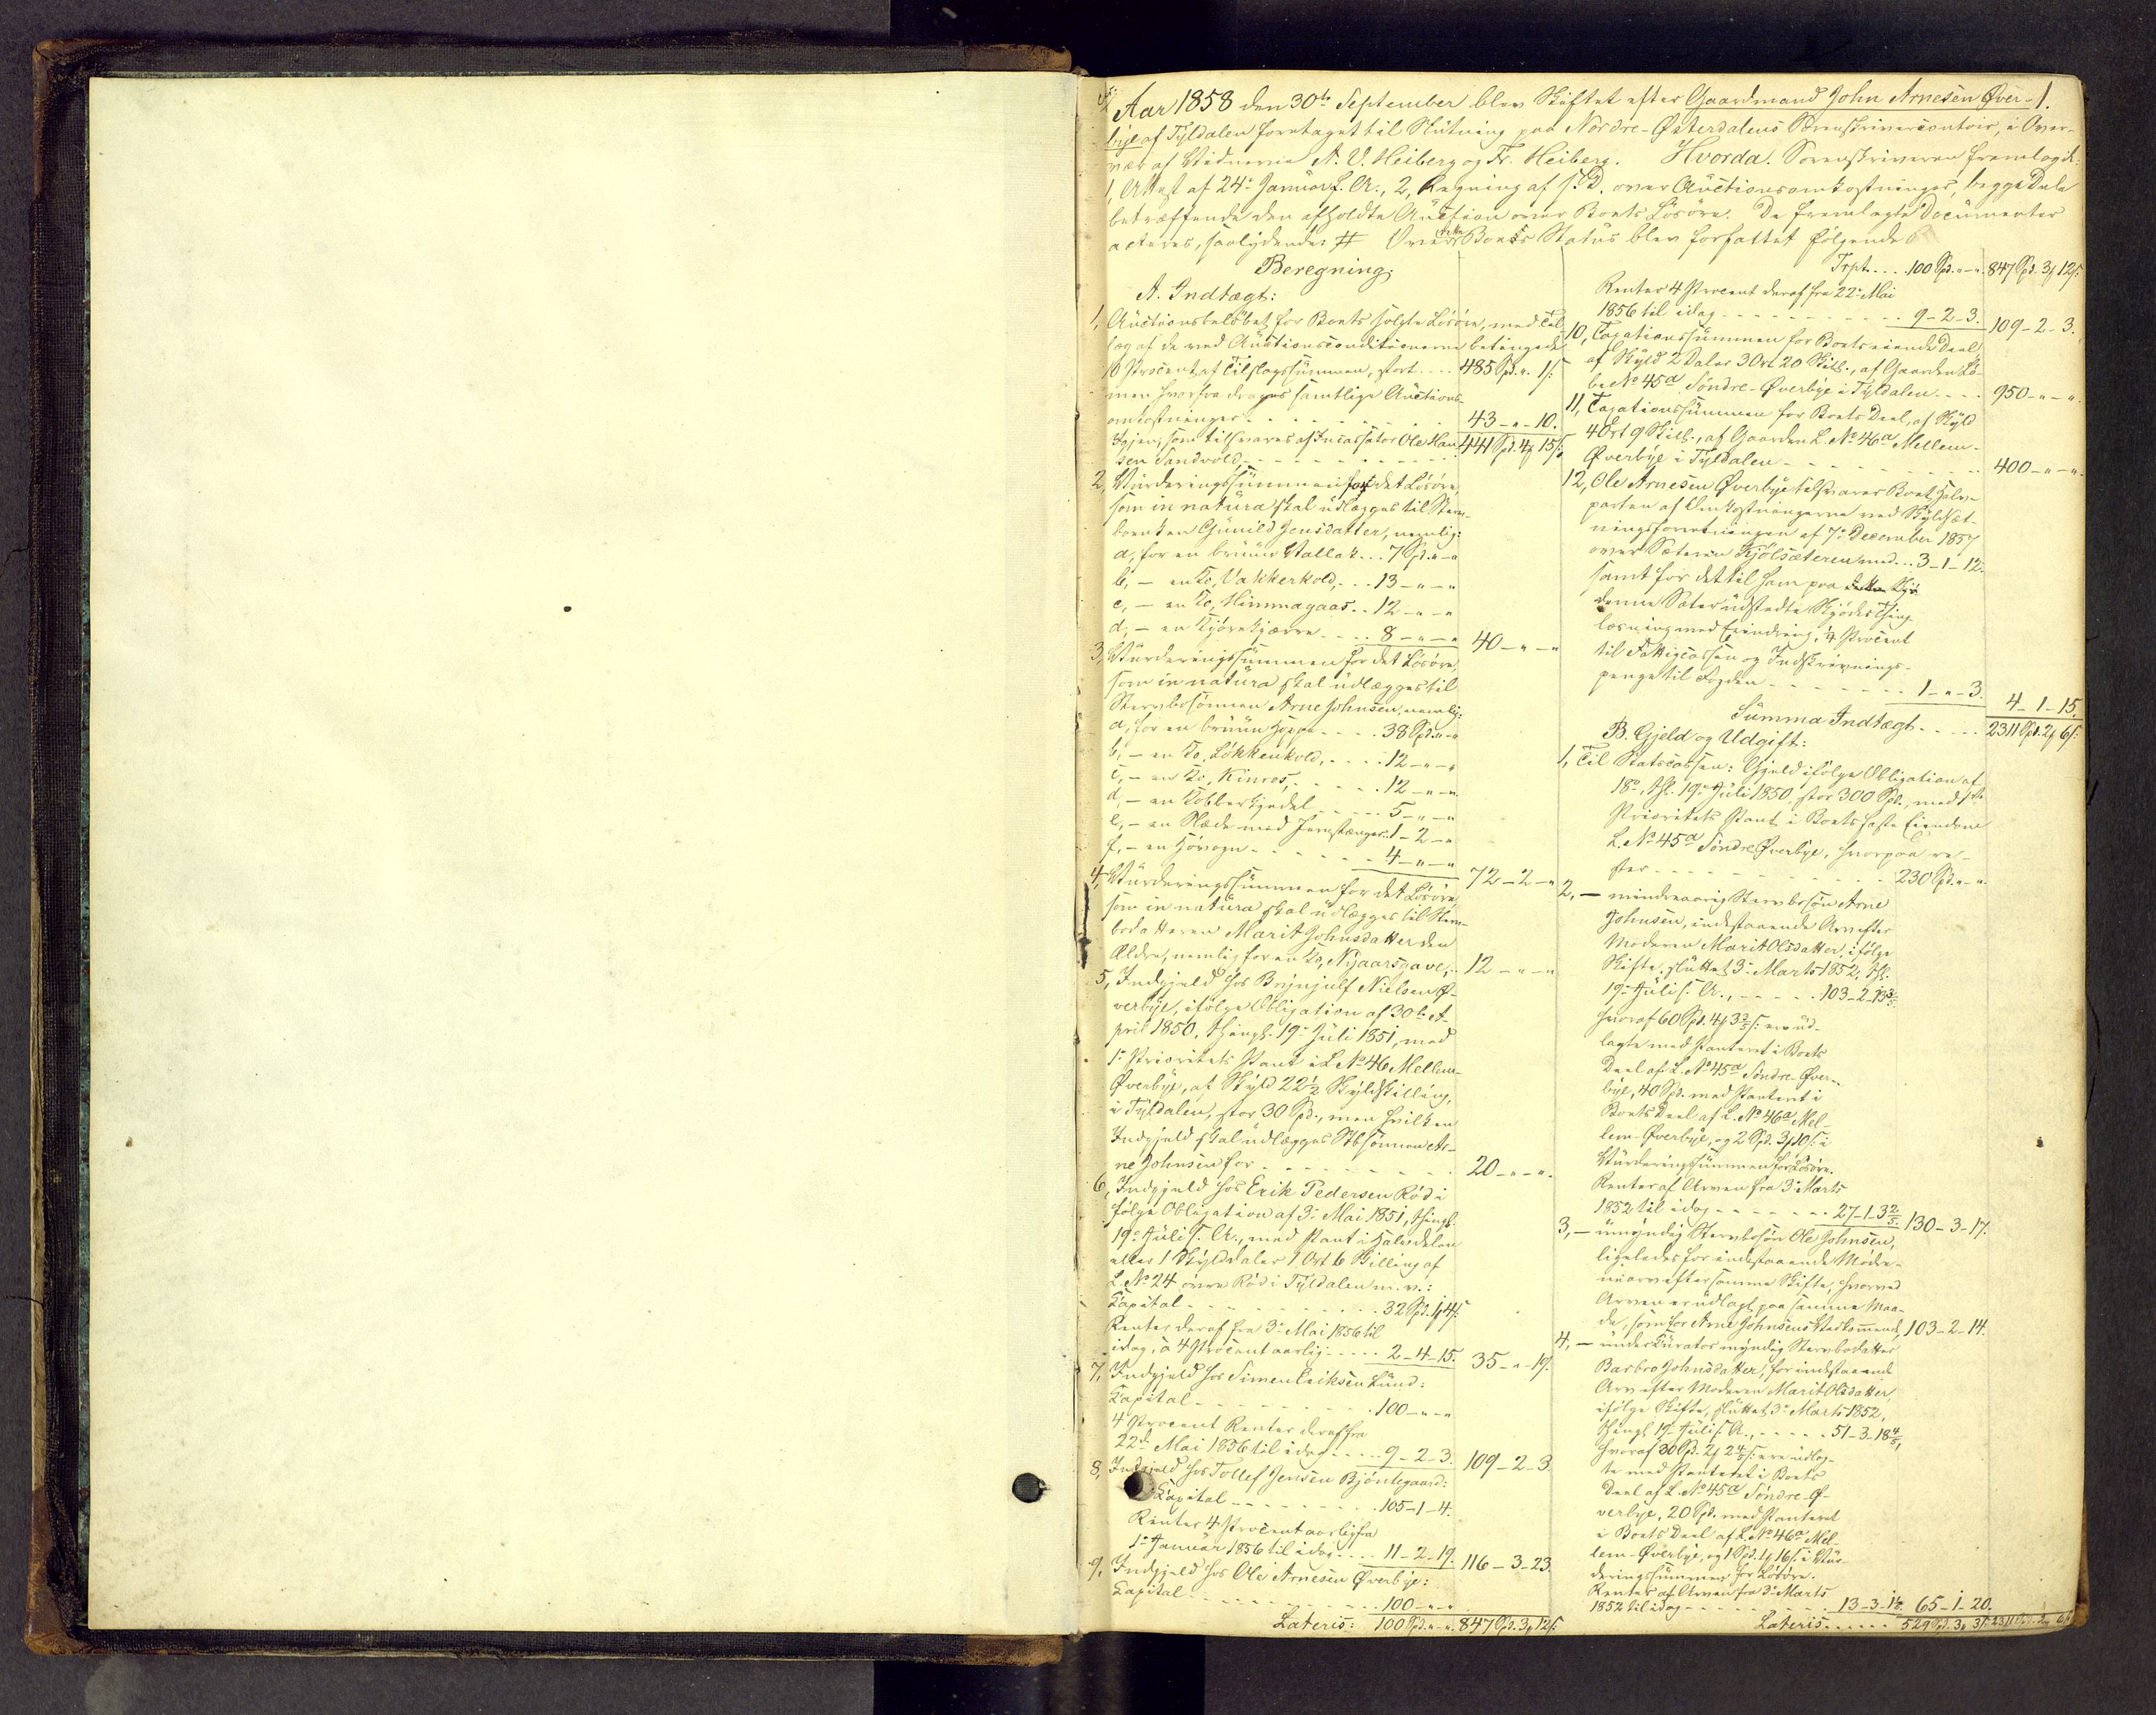 1.
Aar 1858 den 30te September blev Skiftet efter Gaardmand John Arnesen Øver-
bye af Tyldalen foretaget til Slutning paa Nordre-Østerdalens Sorenskrivercontoir, i Over-
vær af Vidnerne A. V. Heiberg og Fr. Heiberg. Hvorda. Sorenskriveren fremlagde:
1, Attest af 24de Januar f. A., 2, Regning af s. D. over Auctionsomkostninger, begge Dele
betræffende den afholdte Auction over Boets Løsøre. De fremlagte Documenter
acteres, saalydende: # Over dette Boets Status blev forfattet følgende
Beregning.
A. Indtægt:
1, Auctionsbeløbet for Boets solgte Løsøre, med Til-
læg af de ved Auctionsconditionerne betingede
10 Procent af Tilslagssummen, stort .... 485 Spd. " 1 s:
men hvorfra drages samtlige Auctions-
omkostninger ........ 43 - " - 10.
Igjen, som tilsvares af Incassator Ole Han- 441 Spd. 4 15 s:
sen Sandvold
2, Vurderingssummen for det Løsøre,
som in natura skal udlægges til Sterv-
boenken Gunild Jensdatter, nemlig:
a, for en bruun Vallak ... 7 Spd. " - "
b, - en Ko, Vakkerkold, ... 13 - " - "
c, - en Ko, Himmagaas .. 12 - " - "
d, - en Kjørekjærre .... 8 - " - " 40 - " - "
3, Vurderingssummen for det Løsøre,
som in natura skal udlægges til
Stervbosønnen Arne Johnsen, nemlig:
a, for en bruun Hoppe .... 38 Spd. " - "
b, - en Ko, Løkkenkold, .... 12 - " - "
c, - en Ko, Kinros, ..... 12 - " - "
d, - en Kobberkjedel ..... 5 - " - "
e, - en Slæde med Jernstænger. 1 - 2 - "
f, - en Høvogn ...... 4 - " - " 72 - 2 - "
4, Vurderingssummen for det Løsøre
som in natura skal udlægges til Sterv-
bodatteren Marit Johnsdatter den
Ældre, nemlig for en Ko, Nyaarsgave, .. 12 - " - "
5, Indgjeld hos Brynjulf Nielsen Ø-
verbye, ifølge Obligation af 30te A-
pril 1850, thingl. 19de Juli 1851, med
1ste Prioritets Pant i L. No 46 Mellem-
Øverbye, af Skyld 22½ Skyldskilling,
i Tyldalen, stor 30 Spd., men hvilken
Indgjeld skal udlægges Stbsønnen Ar-
ne Johnsen for ........ 20 - " - ".
6, Indgjeld hos Erik Pedersen Rød i
følge Obligation af 3de Mai 1851, thingl.
19de Juli s. A., med Pant i Halvdelen
eller 1 Skylddaler 1 Ort 6 Skilling af
L. No 24 øvre Rød i Tyldalen m. v.:
Kapital ........ 32 Spd. 1 4 s:
Renter deraf fra 3de Mai 1856 til
idag, à 4 Procent aarlig ..... 2 - 4 - 15. 35 - " - 19.
7, Indgjeld hos Simen Eriksen Lund:
Kapital ........ 100 - " - "
4 Procent Renter deraf fra
22de Mai 1856 til idag .... 9 - 2 - 3. 109 - 2 - 3.
8, Indgjeld hos Tollef Jensen Bjøntegaard:
Kapital ........ 105 - 1 - 4.
Renter 4 Procent aarlig fra
1ste Januar 1856 til idag .... 11 - 2 - 19. 116 - 3 - 23.
9, Indgjeld hos Ole Arnesen Øverbye:
Kapital ........ 100 - " - "
Lateris: 100 Spd. " - ". 847 Spd. 3 12 s:
Trpt. ... 100 Spd. " - ". 847 Spd. 3 12 s:
Renter 4 Procent deraf fra 22de Mai
1856 til idag ........ 9 - 2 - 3. 109 - 2 - 3.
10, Taxationssummen for Boets eiende Deel,
af Skyld 2 Daler 3 Ort 20 Skill., af Gaarden Lø-
be No 45a Søndre-Øverbye i Tyldalen .... 950 - " - ".
11, Taxationssummen for Boets Deel, af Skyld
4 Ort 9 Skill., af Gaarden L. No 46a Mellem-
Øverbye i Tyldalen ........ 400 - " - ".
12, Ole Arnesen Øverbye tilsvarer Boet Halv-
parten af Omkostningerne ved Skyldsæt-
ningsforretningen af 7de December 1857
over Sæteren Kjølsæteren med ... 3 - 1 - 12.
samt for det til ham paa
denne Sæter udstedte Skjødes Thing-
læsning med Eiendring, ¼ Procent
til Fattigcassen og Indskrivnings-
penge til Fogden ....... 1 - " - 3. 4 - 1 - 15.
Summa Indtægt ..... 2311 Spd. 2 6 s:
B. Gjeld og Udgift:
1, Til Statscassen: Gjeld ifølge Obligation af
18de, thl. 19de Juli 1850, stor 300 Spd., med 1ste
Prioritets Pant i Boets faste Eiendom
L. No 45a Søndre Øverbye, hvorpaa re-
ster ........ 230 Spd. " - ".
2, - mindreaarig Stervbosøn Arne
Johnsen, indestaaende Arv efter
Moderen Marit Olsdatter, ifølge
Skifte, sluttet 3de Marts 1852, thl.
19de Juli s. A., ..... 103 - 2 - 13⅗
hvoraf 60 Spd. 4 3⅗ s: ere ud-
lagte med Panteret i Boets
Deel af L. No 45a Søndre-Øver-
bye, 40 Spd. med Panteret i
Boets Deel af L. No 46a Mel-
lem-Øverbye, og 2 Spd. 3 10 s: i
Vurderingssummen for Løsøre.
Renter af Arven fra 3de Marts
1852 til idag ....... 27 - 1 - 3⅖. 130 - 3 - 17.
3, - umyndig Stervbosøn Ole Johnsen,
ligeledes for indestaaende Mødre-
nearv efter samme Skifte, hvorved
Arven er udlagt paa samme Maa-
de, som for Arne Johnsens Vedkommende, 103 - 2 - 14.
4, - under Kurator myndig Stervbodatter
Barbro Johnsdatter, for indestaaende
Arv efter Moderen Marit Olsdatter,
ifølge Skifte, sluttet 3de Marts 1852,
thingl. 19de Juli s. A., ..... 51 - 3 - 18⅘,
hvoraf 30 Spd. 2 2⅘ s: ere udlag-
te med Panteret i Boets
Deel af L. No 45a Søndre-Ø-
verbye, 20 Spd. med Panteret
i Boets Deel af L. No 46a Mel-
lem-Øverbye, og 1 Spd. 1 16 s: i Vur-
deringssummen for Løsøre.
Renter af Arven fra 3de Marts
1852 til idag ........ 13 - 3 - 1⅕. 65 - 1 - 20.
Lateris ...... 529 Spd. 3 3 s: 2311 Spd. 2 6 s: